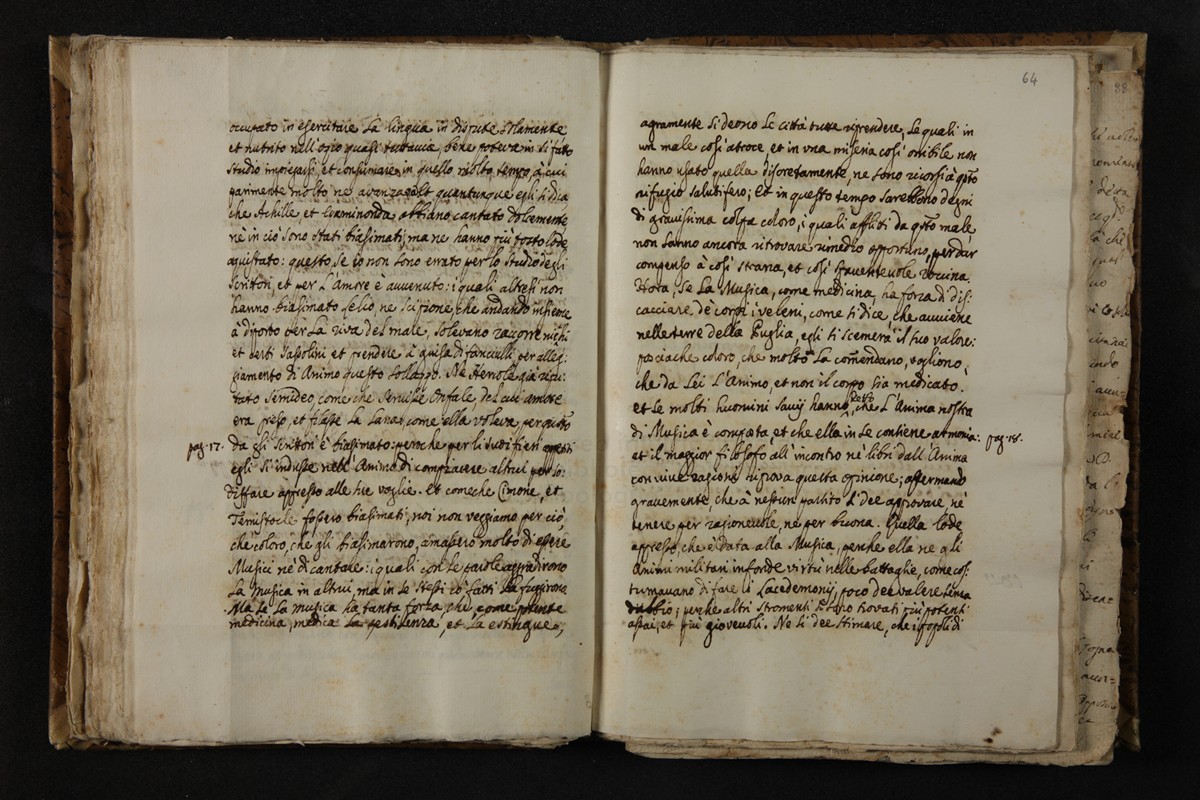 occupato in esercitare la lingua in dispute solamente
et nutrito nell'ozio quasi tuttavia, bene poteva in sì fatto
studio impiegarsi, et consumare in quello molto tempo, à cui
parimente molto ne avanzava. Et quantunque egli si dica
che Achille et Epaminonda abbiano cantato dolcemente
nè in ciò sono stati biasimati, ma ne hanno più tosto lode
acquistato: questo, se io non sono errato per lo studio degli
scrittori, et per l'amore è avvenuto: i quali altresì non
hanno biasimato Lelio, ne Scipione, che andando insieme
à diporto per la riva del mare, solevano raccorre nicchi
et certi sassolini et prendere à guisa di fanciulli per alleg:
giamento di Animo questo sollazzo. Ne Hercole già ripu:
tato semideo, come che servisse Onfale, del cui amore
era preso, et filasse la lana, come ella voleva, per questo
pag. 17.
da gli scrittori è biasimato: peroche per li suoi fieri
egli si indusse nell'Animo di compiacere altrui per so:
disfare appresso alle sue voglie. Et comeche Cimone, et
Temistocle fossero biasimati, noi non veggiamo per ciò,
che coloro, che gli biasimarono, amassero molto di essere
Musici nè di cantare: i quali con le parole aggradirono
la musica in altrui, ma in se stessi co' fatti la fuggirono
Ma se la musica ha tanta forza, che come potente
medicina, medica la pestilenza, et la estingue,
64
agramente si deono le città tutte riprendere, le quali in
un male così atroce, et in una miseria così orribile non
hanno usato quella discretamente, ne sono ricorsi à qsto
rifugio salutifero; Et in questo tempo sarebbono degni
di gravissima colpa coloro, i quali afflitti da qsto male
non sanno ancora ritrovare rimedio opportuno, per dar
compenso à così strana, et così spaventevole rovina.
Hora, se la Musica, come medicina, ha forza di dis:
cacciare de' corpi i veleni, come si dice, che avviene
nelle terre della Puglia, egli si scemerà il suo valore:
posciache coloro, che molto la comendano, vogliono,
che da lei l'Animo, et non il corpo sia medicato.
et se molti huomini savij hanno detto, che l'Anima nostra
di Musica è composta et che ella in se contiene armonia:
pag. 18.
et il maggior filosofo all'incontro ne' libri dell'Anima
con vive ragioni riprova questa opinione; affermando
gravemente, che à nessun partito si dee approvare, nè
tenere per ragionevole, ne per buona. Quella lode
appresso, che è data alla Musica, perche ella ne gli
Animi militari infonde virtù nelle battaglie, come cos:
tumavano di fare i Lacedemonij, poco dee valere senza
dubbio; perche altri stromenti si sono trovati più potenti
assai, et più giovevoli. Ne si dee stimare, che i popoli di